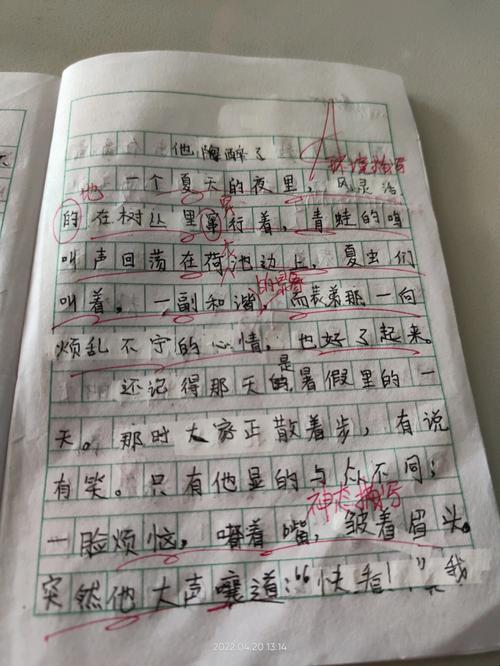 他陶醉了
环境描写
一个夏天的夜里，风灵活
地
的在树丛里窜行着，青蛙的鸣
叫声回荡在荷池边上，夏虫们
叫着。一副和谐，而表弟那一向
的景象
烦乱不宁的心情，也好了起来。
还记得那天是的暑假里的一
天。那时大家正散着步，有说
有笑。只有他显的与众不同：
神态描写
一脸烦恼，嘟着嘴，皱着眉头。
突然他大声嚷道：“快看！”我
2022.04.20 13:14